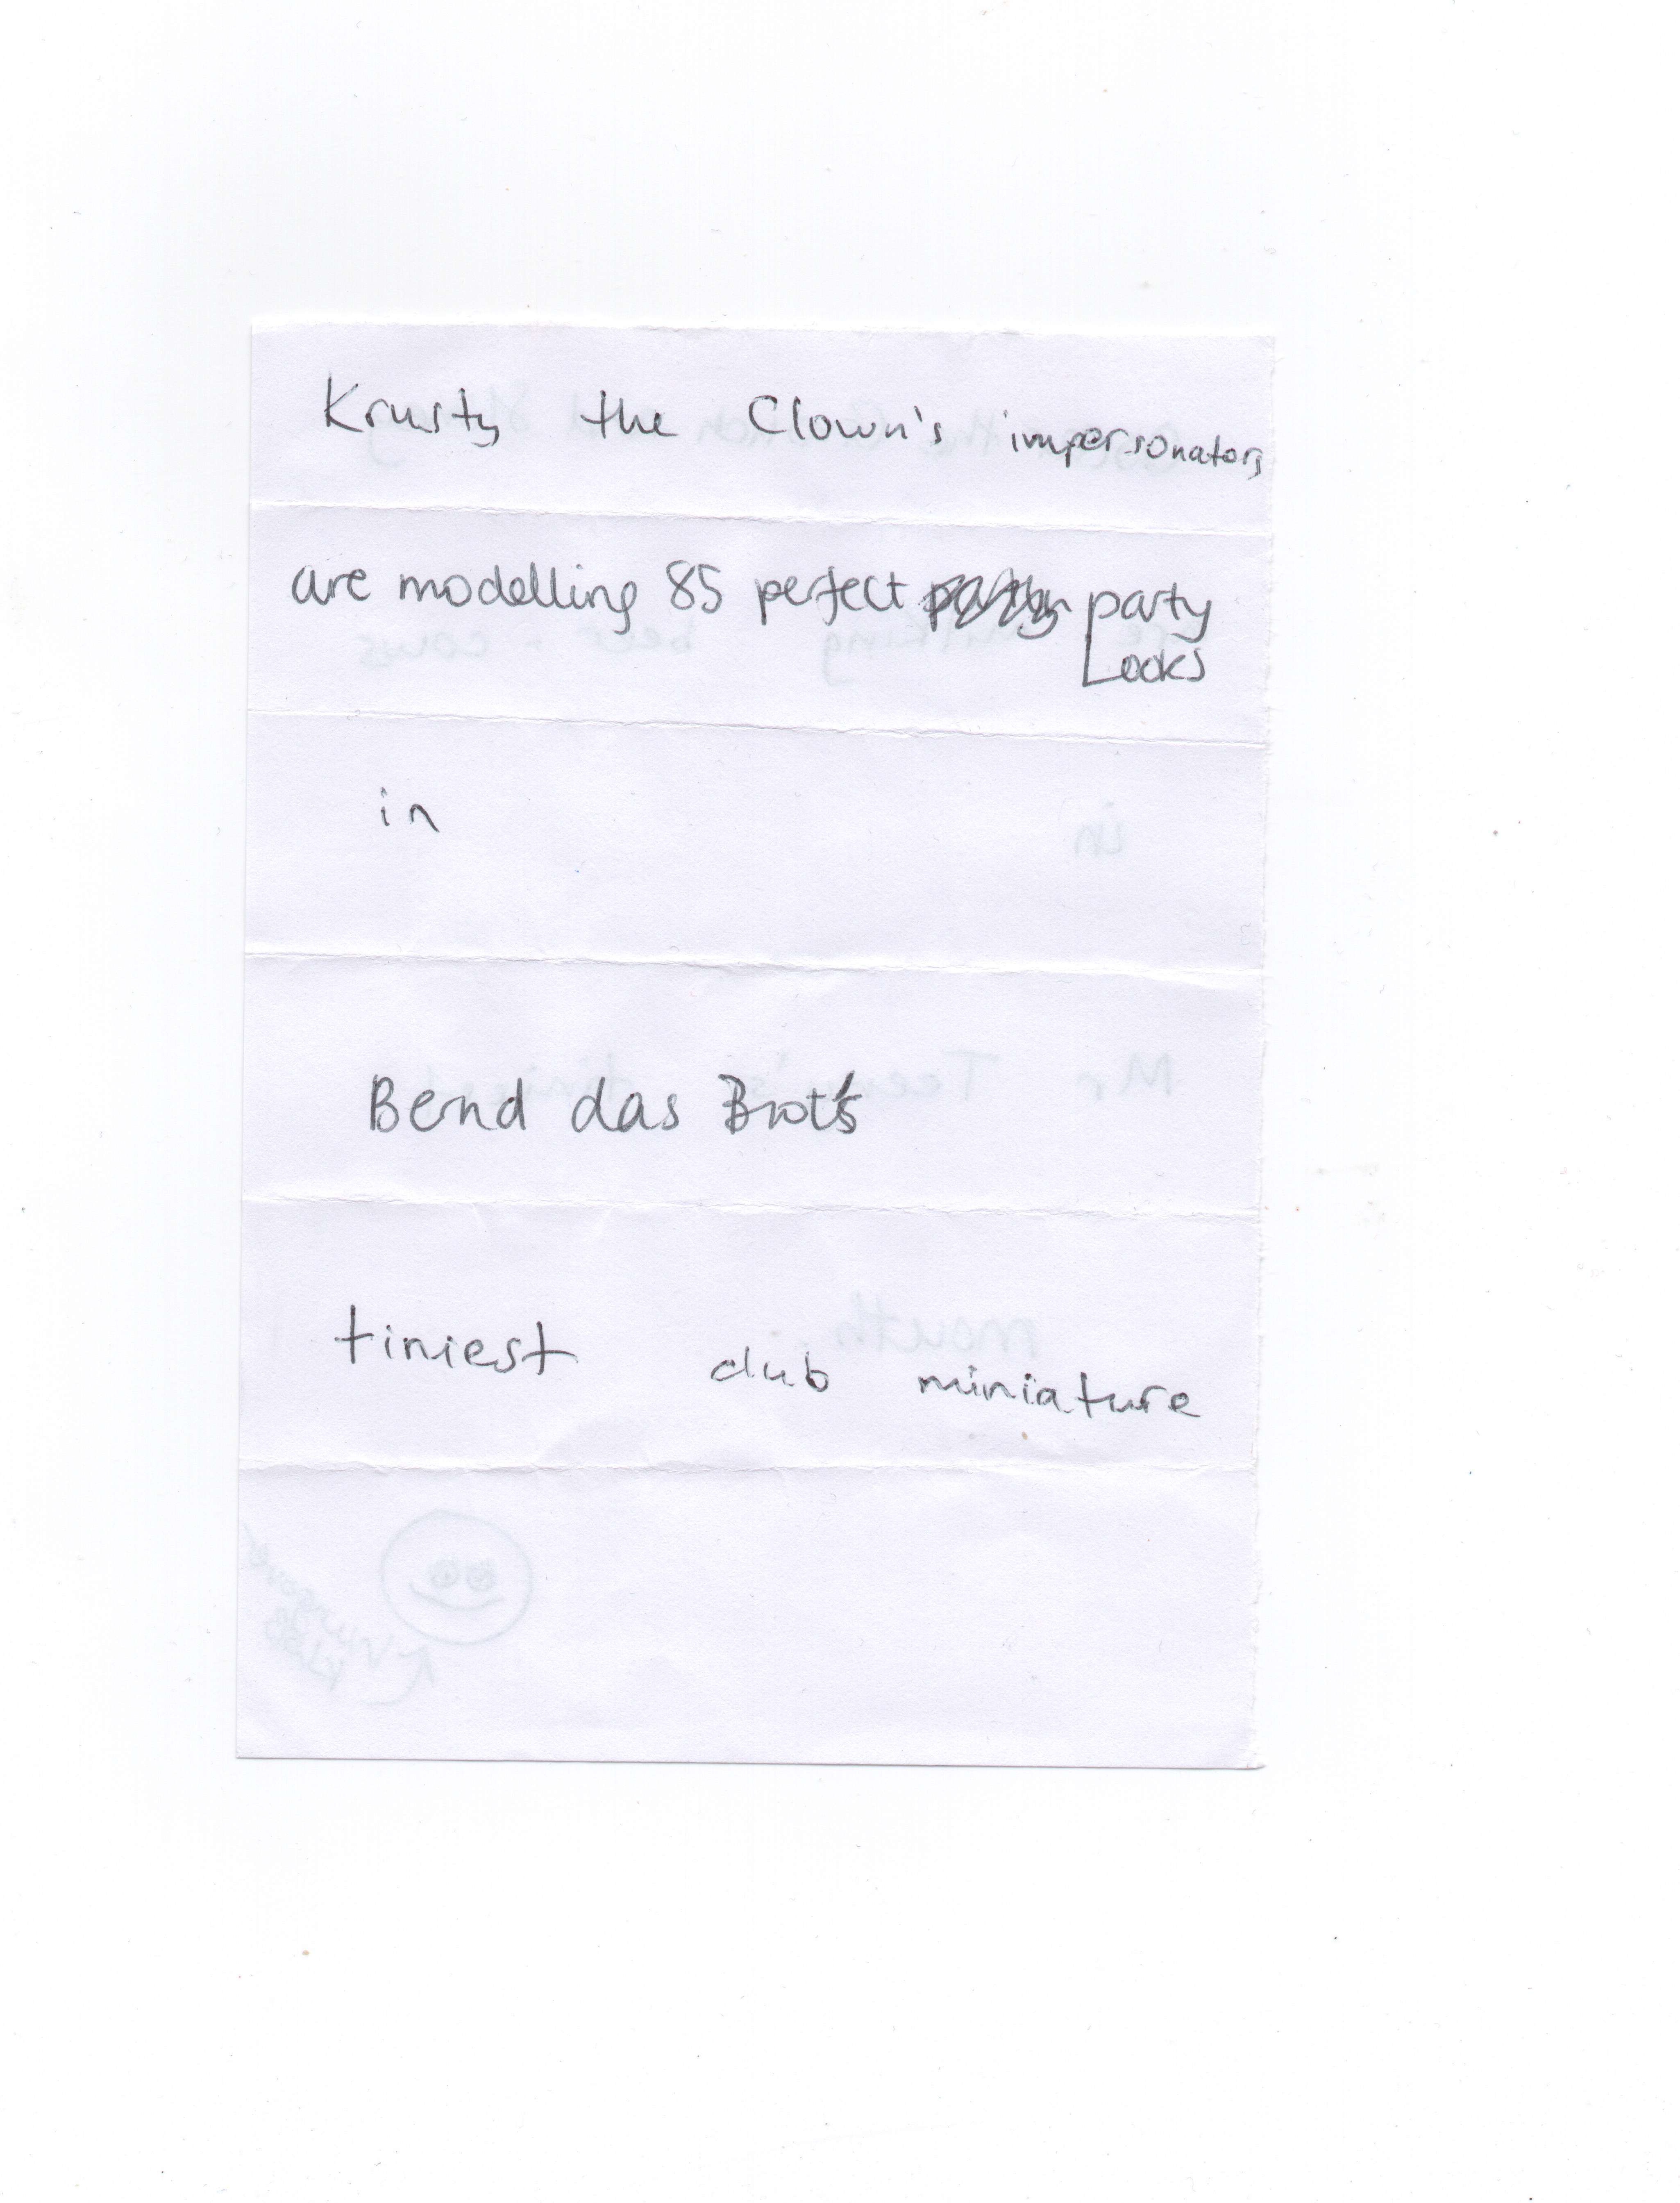 Krusty the Clown's impersonators
are modelling 85 perfect party
Looks
in
Bend das Brot's
tiniest club miniature